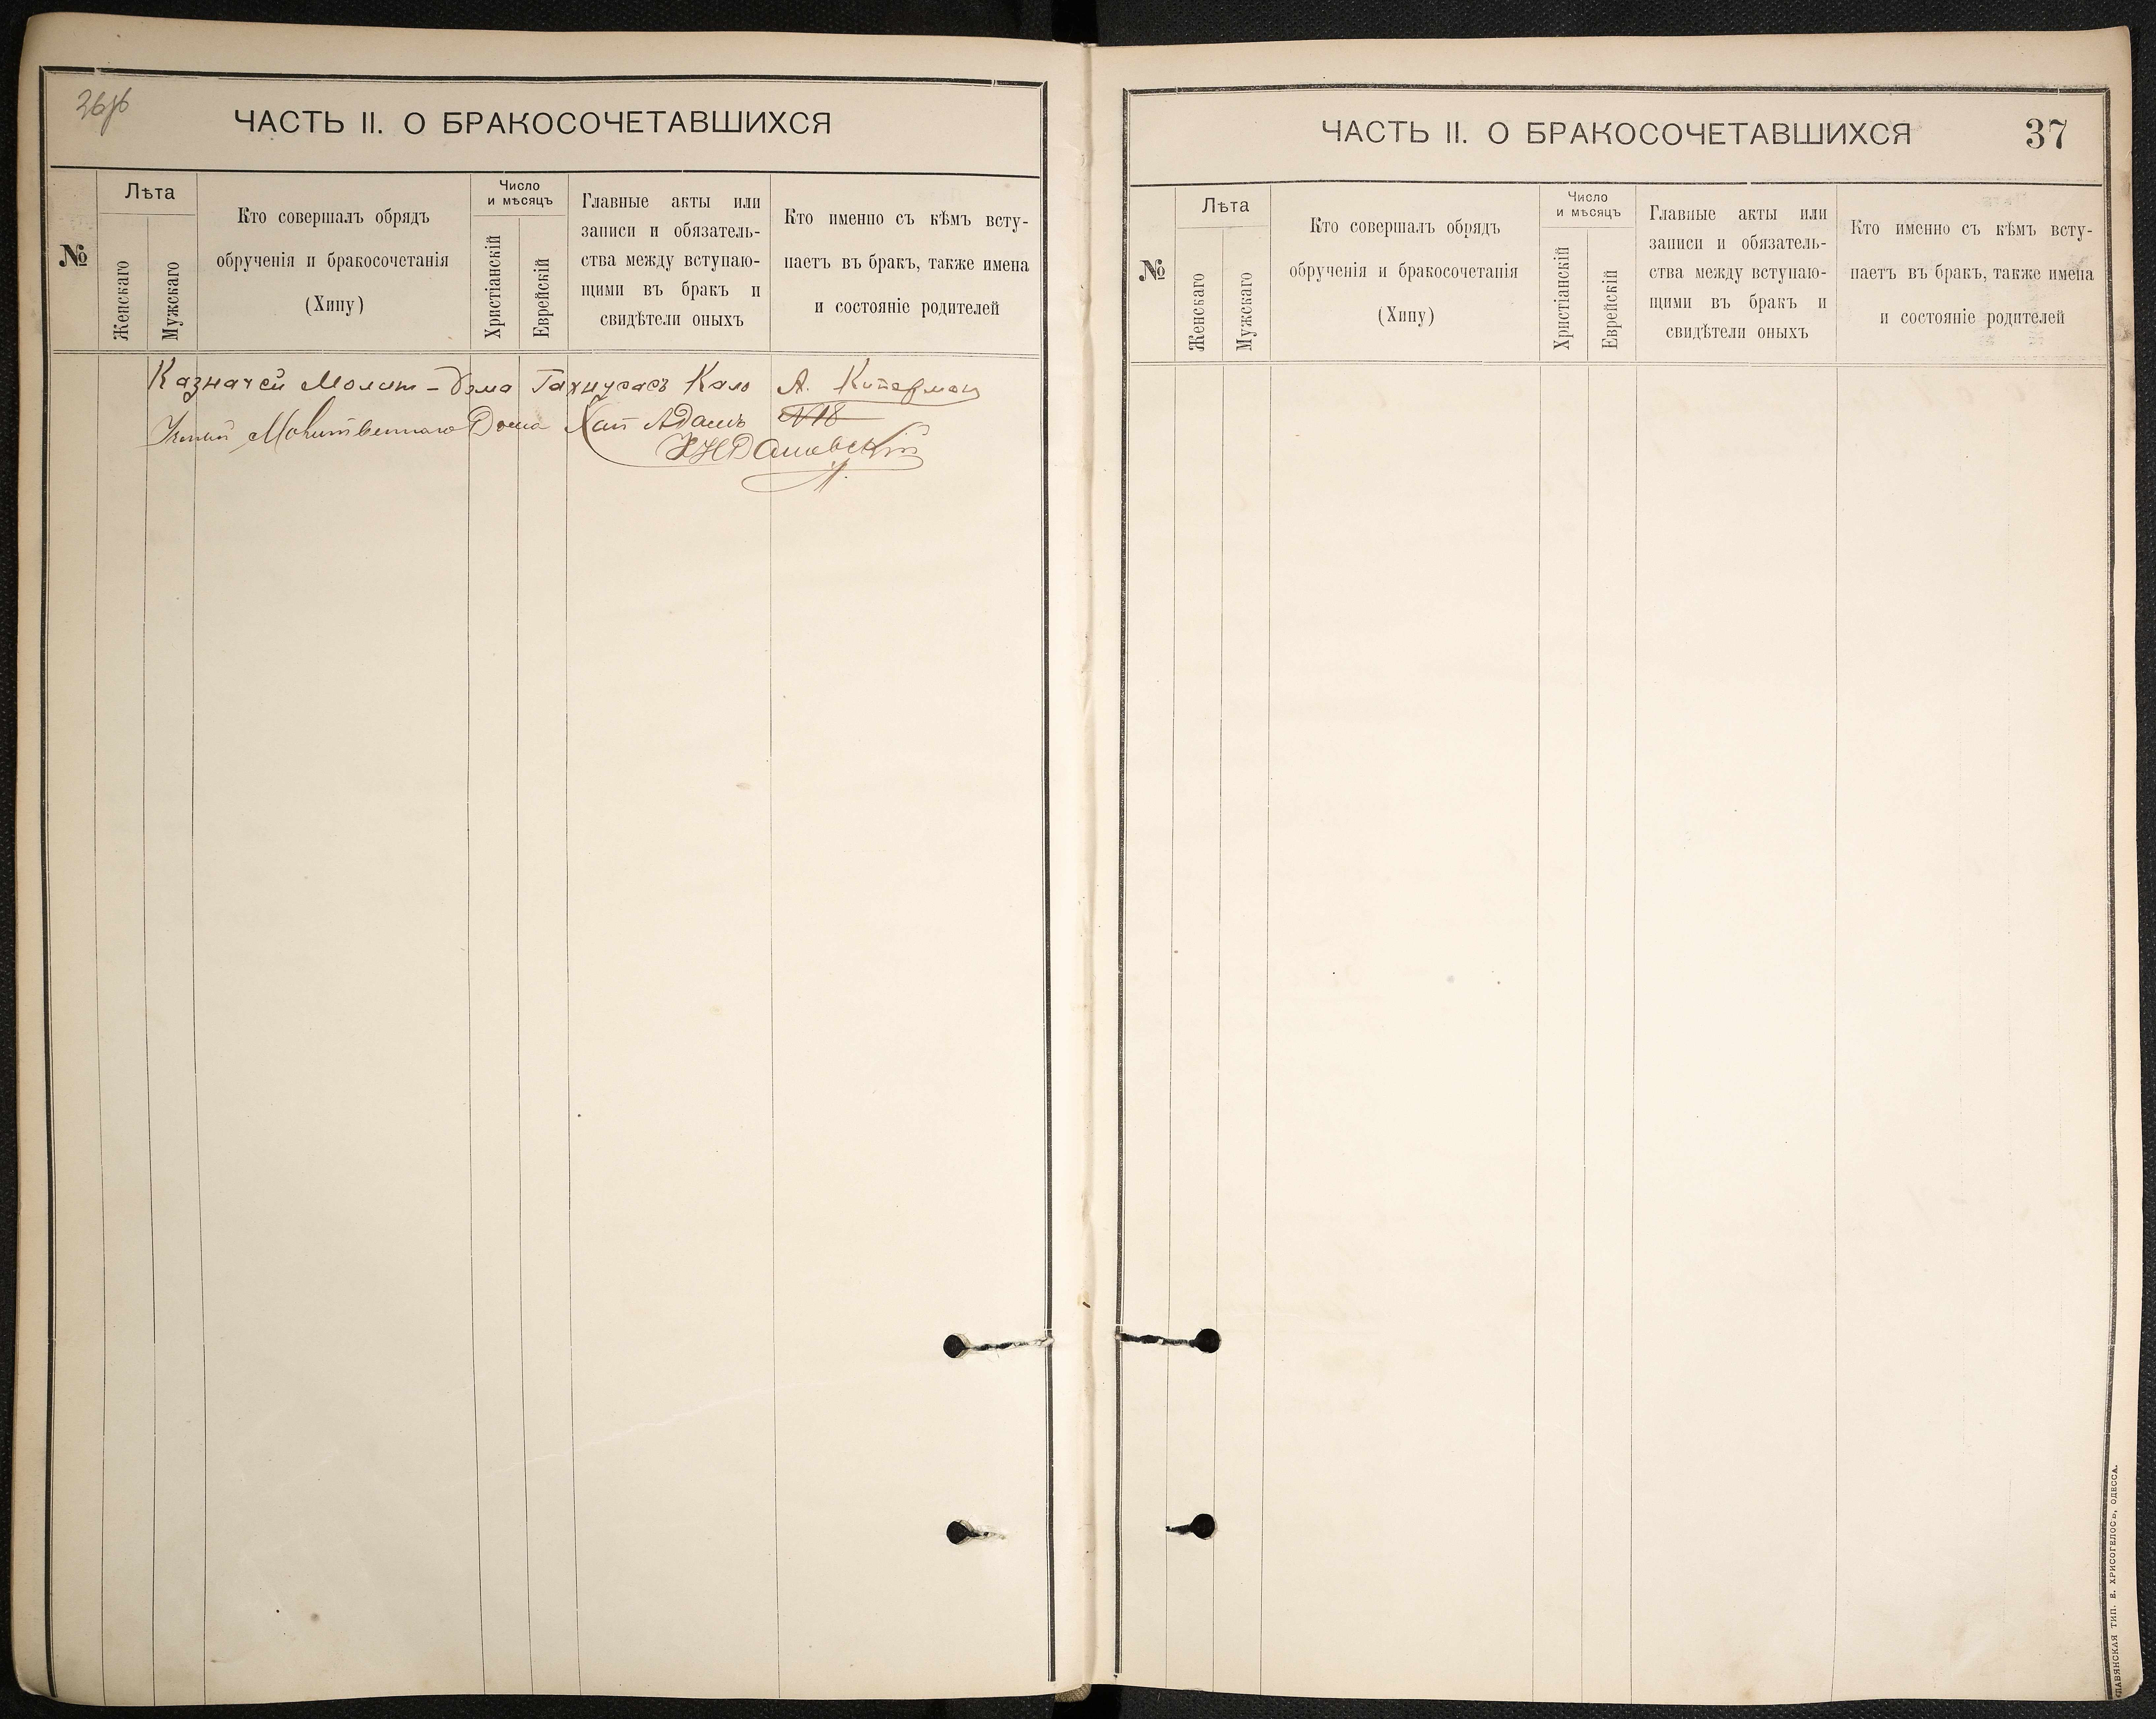 ЧАСТЬ II. О БРАКОСОЧЕТАВШИХСЯ
№
Лѣта
Женскаго
Мужскаго
Кто совершалъ обрядъ
обрученія и бракосочетанія
(Хипу)
Число
и мѣсяцъ
Христіанскій
Еврейскій
Главные акты или
записи и обязатель-
ства между вступаю-
щими въ бракъ и
свидѣтели оныхъ
Кто именно съ кѣмъ всту-
паетъ въ бракъ, также имена
и состояніе родителей
Казначей Молит-дома А. Киперман
Молитвеннаго Дома
№ 18
ЧАСТЬ II. О БРАКОСОЧЕТАВШИХСЯ
37
№
Лѣта
Женскаго
Мужскаго
Кто совершалъ обрядъ
обрученія и бракосочетанія
(Хипу)
Число
и мѣсяцъ
Христіанскій
Еврейскій
Главные акты или
записи и обязатель-
ства между вступаю-
щими въ бракъ и
свидѣтели оныхъ
Кто именно съ кѣмъ всту-
паетъ въ бракъ, также имена
и состояніе родителей
СЛАВЯНСКАЯ ТИП. Е. ХРИСОГЕЛОСЪ, ОДЕССА.